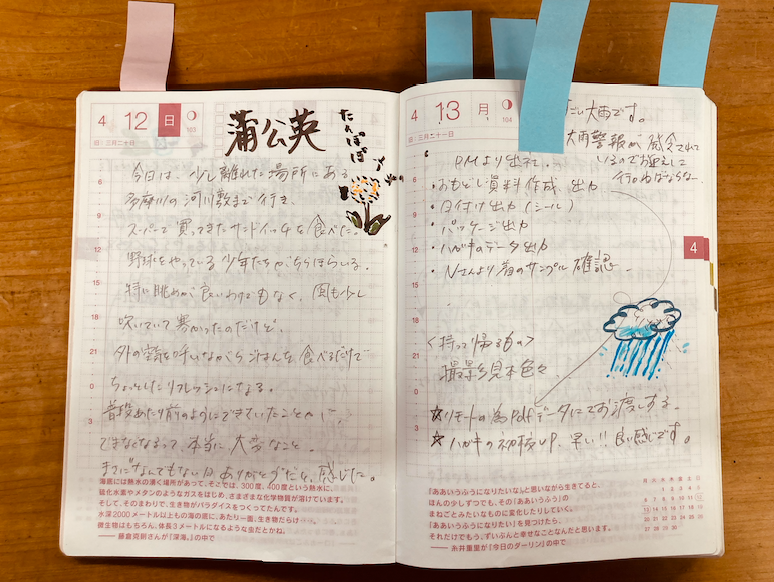 4 12 日
103
旧:三月二十日
蒲公英
たんぽぽ
今日は、少し離れた場所にある
多摩川の河川敷まで行き、
スーパーで買ってきたサンドイッチを食べた。
野球をやっている少年たちがちらほらいる。
特に眺めが良いわけでもなく、風も少し
吹いていて寒かったのだけど、
外の空気を吸いながらごはんを食べるだけで
ちょっとしたリフレッシュになる。
普段あたり前のようにできていたことが、
できなくなるって、本当に大変なこと。
まさに"なんでもない日、ありがとう"だと、感じた。
海底には熱水の湧く場所があって、そこでは、300度、400度という熱水に、
硫化水素やメタンのようなガスをはじめ、さまざまな化学物質が溶けています。
そして、そのまわりで、生き物がパラダイスをつくってたんです。
水深2000メートル以上もの海の底に、あたり一面、生き物だらけ……。
微生物はもちろん、体長3メートルになるような虫だとかね。
—— 藤倉克則さんが『深海。』の中で
4 13 月
104
旧:三月二十一日
大雨です。
大雨警報が発令されて
いるのでお迎えに
行かねばならない
PMより出社。
・おもどし資料作成、出力
・日付け出力(シール)
・パッケージ出力
・ハガキのデータ出力
・Nさんより着のサンプル確認
4
<持って帰るもの>
撮影見本色々、
☆リモートの為pdfデータにてお渡しする。
☆ハガキの初校UP、早い!!良い感じです。
『ああいうふうになりたいな』と思いながら生きてると、
ほんの少しずつでも、その『ああいうふう』の
まねごとみたいなものに変化したりしていく。
『ああいうふうになりたい』を見つけたら、
それだけでもう、ずいぶんと幸せなことなんだと思います。
—— 糸井重里が『今日のダーリン』の中で
月 火 水 木 金 土 日
1 2 3 4 5
6 7 8 9 10 11 12
13 14 15 16 17 18 19
20 21 22 23 24 25 26
27 28 29 30